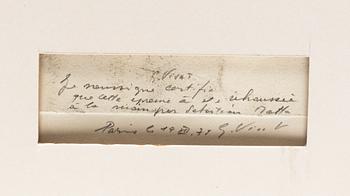 G. Visat
Je soussigné certifie
que cette épreuve a été rehaussée
à la main par Sebastian Matta
Paris le 19 XI. 75 G. Visat